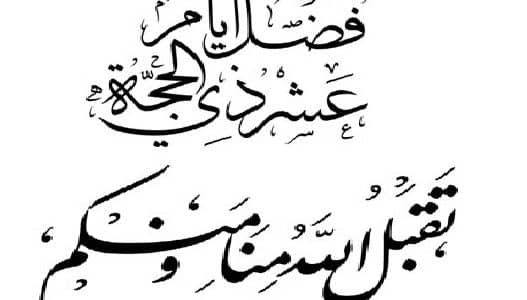 فضل أيام
عشر ذي الحجة
تقبل الله منا ومنكم